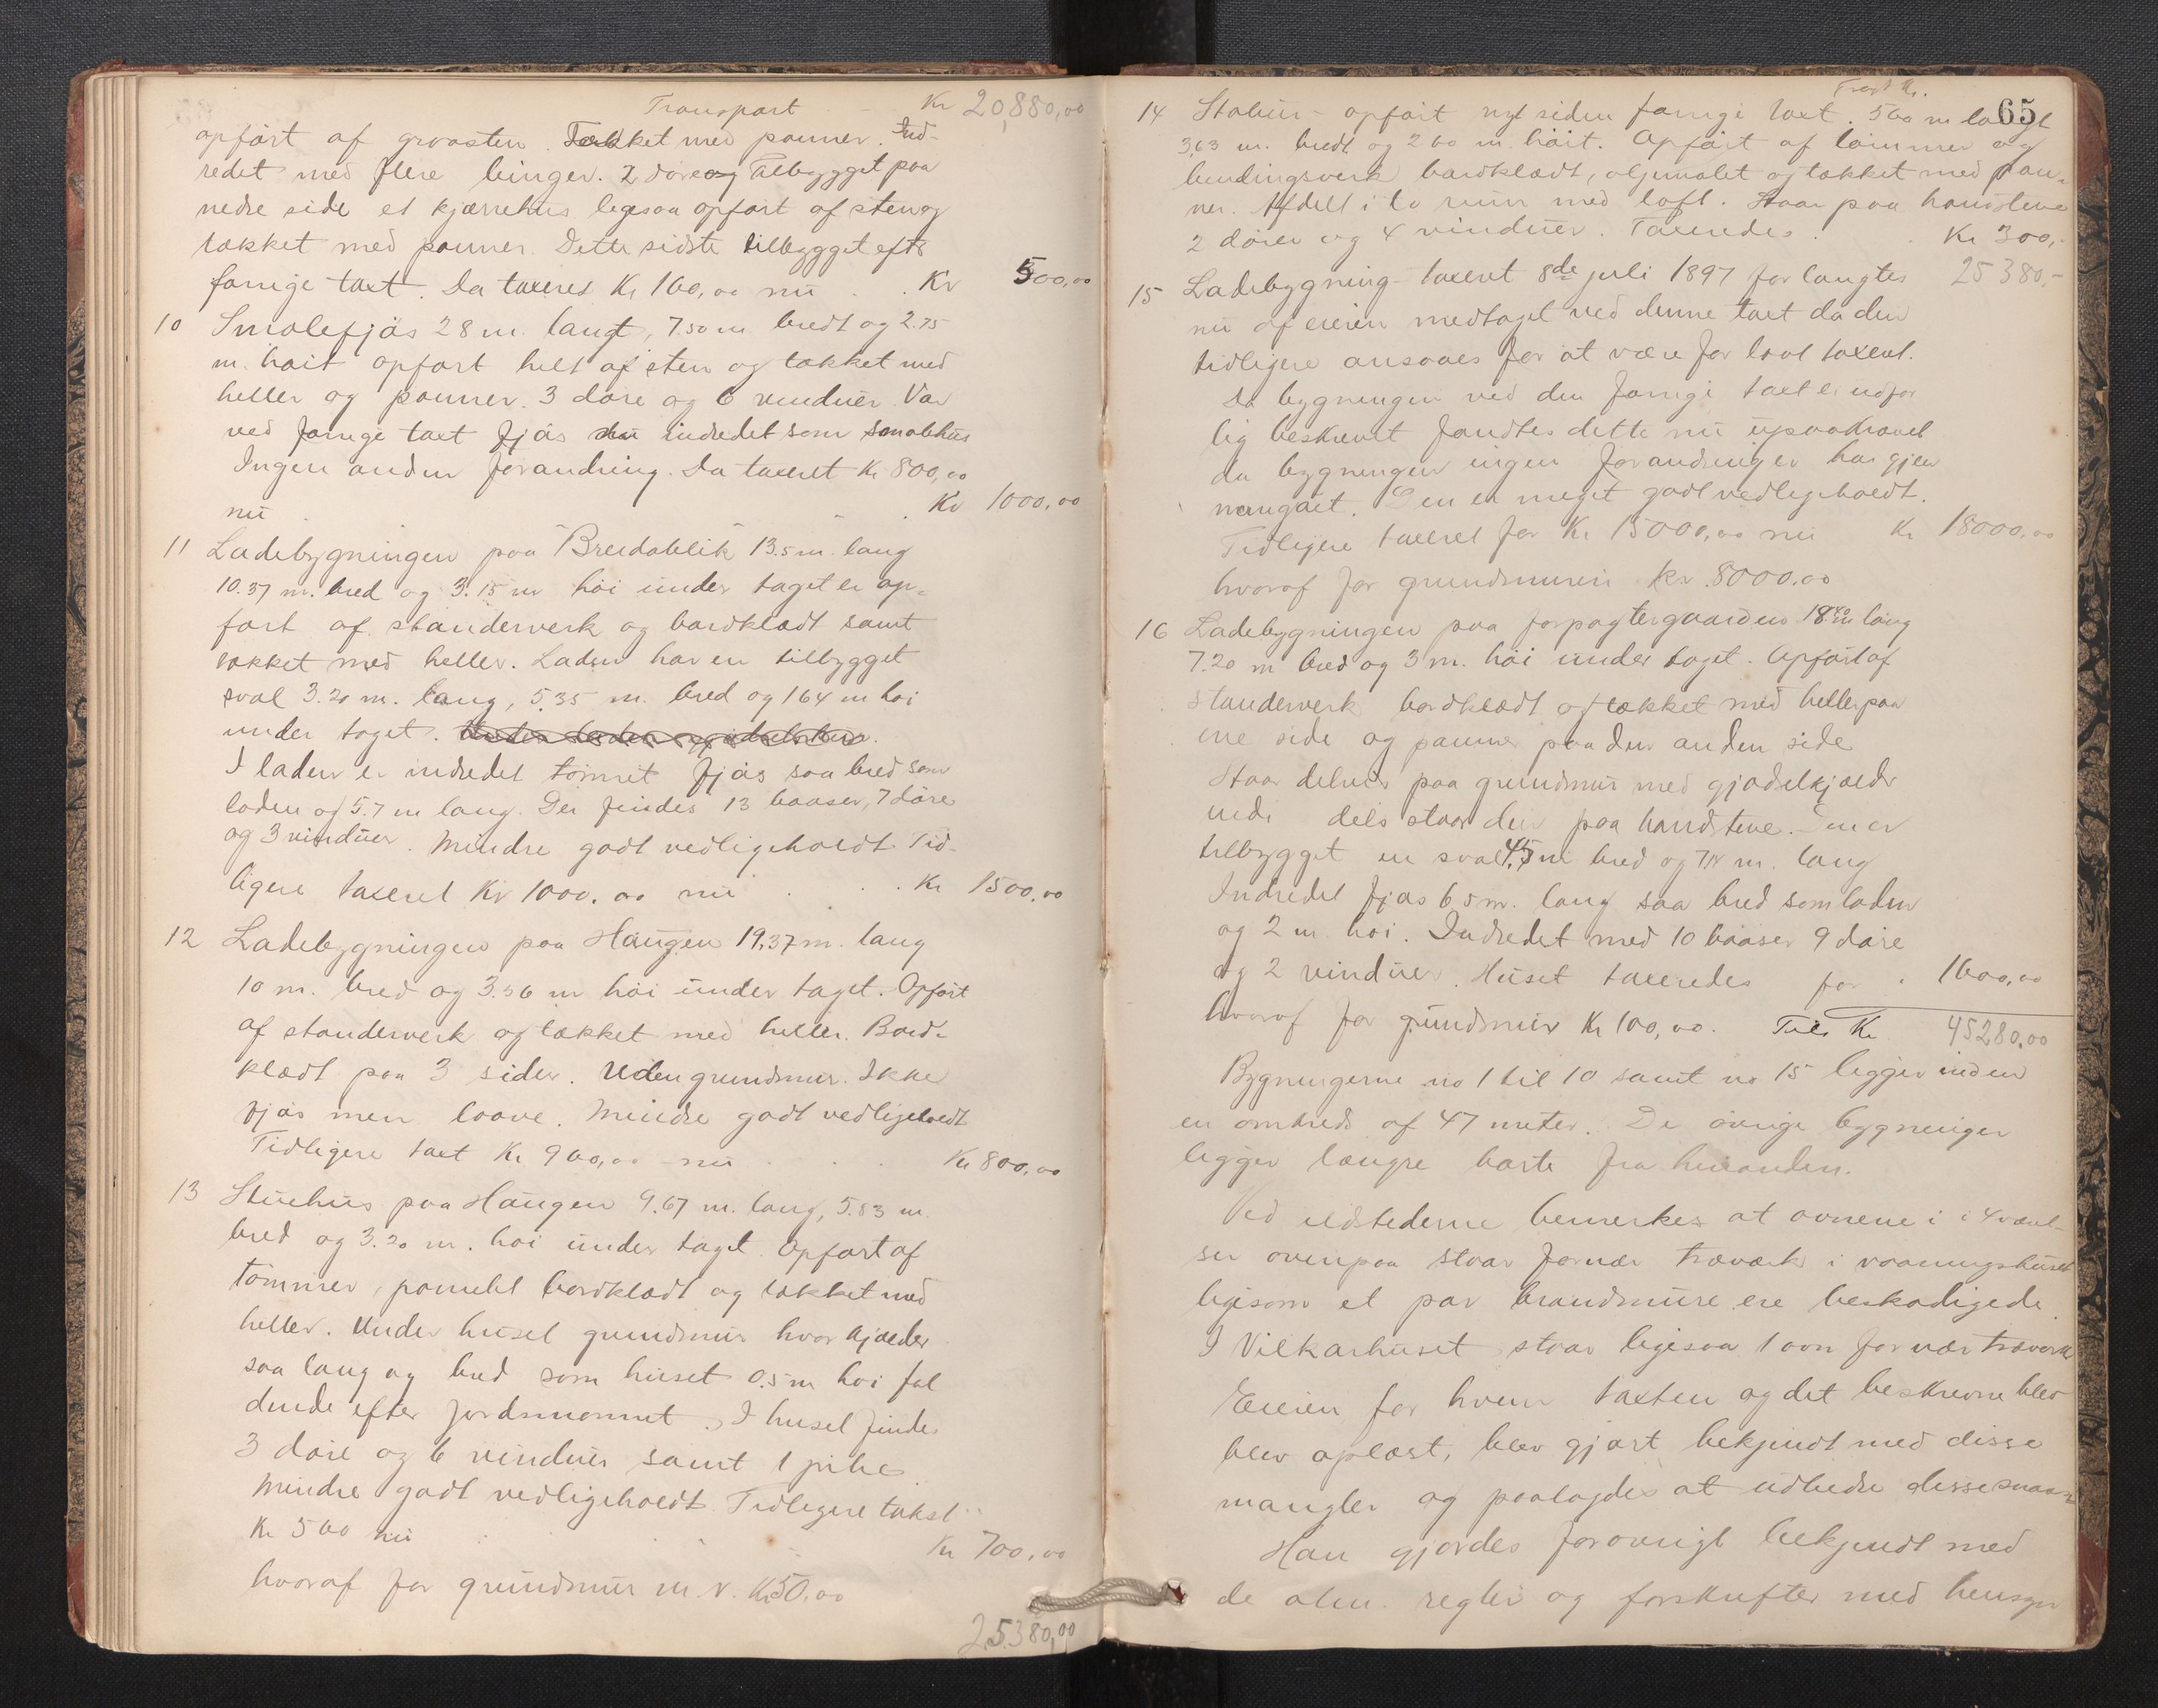 Transport Kr 20,880,00
opført af graasten. Tækket med panner. Ind-
redet med flere binger. 2 døre og Tilbygget paa
nedre side et kjærrehus ligesaa opført af sten og
tækket med panner. Dette sidste tilbygget efter
forrige taxt. Da taxeres Kr 160,00 nu Kr 500,00
10 Smalefjøs 28 m. langt, 7.50 m bredt og 2.75
m. høit opført helt af sten og tækket med
heller og panner. 3 døre og 6 vinduer. Var
ved forrige taxt fjøs nu indredet som smalehus
Ingen anden forandring. Da taxeret Kr 800,00
nu Kr 1000,00
11 Ladebygningen paa "Breidablik" 13.5 m. lang
10.37 m. bred og 3.15 m høi under taget er op-
ført af standerverk og bordklædt samt
tækket med heller. Laden har en tilbygget
sval 3.20 m. lang, 5.35 m. bred og 164 m høi
under taget.
I laden er indredet tømret fjøs saa bred som
laden og 5.7 m lang. Der findes 13 baaser, 7 døre
og 3 vinduer. Mindre godt vedligeholdt. Tid-
ligere taxeret Kr 1000.00 nu Kr 1500,00
12 Ladebygningen paa Haugen 19.37 m. lang
10 m. bred og 3.56 m høi under taget. Opført
af standerverk og tækket med heller. Bord-
klædt paa 3 sider. Uden grundmur. Ikke
fjøs men laave. Mindre godt vedligeholdt
Tidligere taxt Kr 900,00 nu Kr 800,00
13 Stuehus paa Haugen 9.67 m. lang, 5.83 m.
bred og 3.20 m. høi under taget. Opført af
tømmer, panelet bordklædt og tækket med
heller. Under huset grundmur hvor kjælder
saa lang og bred som huset 0.5 m høi fal
dende efter jordsmonnet. I huset findes
3 døre og 6 vinduer samt 1 pibe
Mindre godt vedligeholdt. Tidligere takst
Kr 500 nu Kr 700,00
hvoraf for grundmur m.v. Kr 50,00
25380,00
Trspt Kr.
65
14 Stabur - opført nyt siden forrige taxt. 500 m langt
3,63 m. bredt og 260 m. høit. Opført af tømmer og
bindingsverk bordklædt, oljemalet og tækket med pan-
ner. Afdelt i to rum med loft. Staar paa haandstene
2 døre og 4 vinduer. Taxeredes Kr 300,-
25380,-
15 Ladebygning - taxeret 8de juli 1897 forlangtes
nu af eieren medtaget ved denne taxt da den
tidligere ansaaes for at være for lavt taxeret.
Da bygningen ved den forrige taxt er udfør
lig beskrevet fandtes dette nu upaakrævet
da bygningen ingen forandringer har gjen
nemgaaet. Den er meget godt vedligeholdt.
Tidligere taxeret for Kr 15000,00 nu Kr 18000,00
hvoraf for grundmuren Kr. 8000.00
16 Ladebygningen paa forpagtergaarden 18.40 m lang
7.20 m bred og 3 m. høi under taget. Opført af
standerverk bordklædt og tækket med heller paa
ene side og panner paa den anden side
Staar delvis paa grundmur med gjødselkjælder
undi dels staar den paa haandstene. Den er
tilbygget en sval 4,5 m bred og 7.14 m. lang
Indredet fjøs 6 5 m. lang saa bred som laden
og 2 m. høi. Indredet med 10 baaser 9 døre
og 2 vinduer. Huset taxeredes for 1600,00
hvoraf for grundmur Kr 100,00. Tils Kr 45280.00
Bygningerne no 1 til 10 samt no 15 ligger inden
en omkreds af 47 meter. De øvrige bygninger
ligger længre borte fra hinanden.
Ved ildstederne bemerkes at ovnene i 4 værel-
ser ovenpaa staar for nær træværk i vaaningshuset
ligesom et par brandmure ere beskadigede.
I Vilkarhuset staar ligesaa 1 ovn for nær træverk
Eieren for hvem taxten og det beskrevne blev
blev oplæst, blev gjort bekjendt med disse
mangler og paalagdes at udbedre disse snarest
Han gjordes forøvrigt bekjendt med
de alm. regler og forskrifter med hensyn